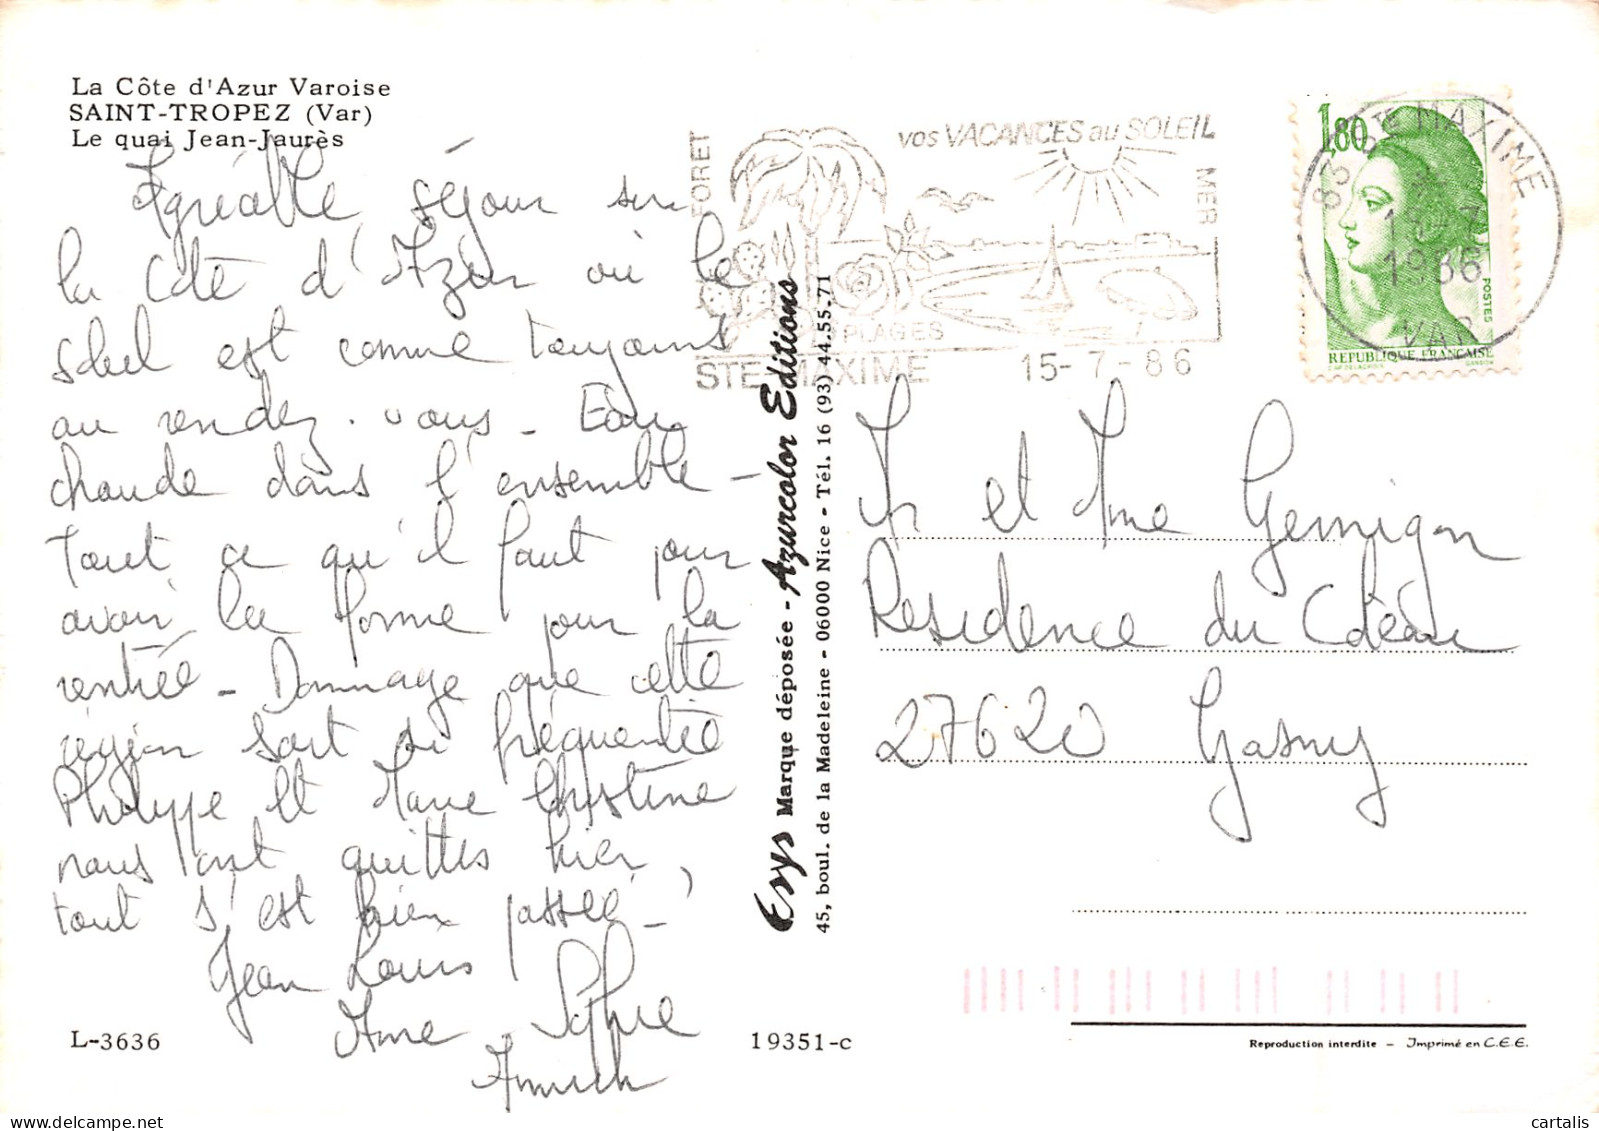 La Côte d'Azur Varoise
SAINT-TROPEZ (Var)
Le quai Jean-Jaurès
Agréable séjour sur
la Côte d'Azur où le
soleil est comme toujours
au rendez-vous - Eau
chaude dans l'ensemble -
Tout ce qu'il faut pour
avoir la forme pour la
rentrée - Dommage que cette
région soit si fréquentée
Philippe et Marie Christine
nous ont quittés hier,
tout s'est bien passé -
Jean Louis
Anne Sophie
Annick
L-3636
19351-c
Erys Marque déposée - Azurcolor Editions
45, boul. de la Madeleine - 06000 Nice - Tél. 16 (93) 44.55.71
FORET
VOS VACANCES au SOLEIL
MER
PLAGES
STE MAXIME
15-7-86
1,80
POSTES
REPUBLIQUE FRANÇAISE
83 STE MAXIME
1986
VAR
Mr et Mme
Résidence du Côteau
27620 Gasny
Reproduction interdite - Imprimé en C.E.E.
cartalis